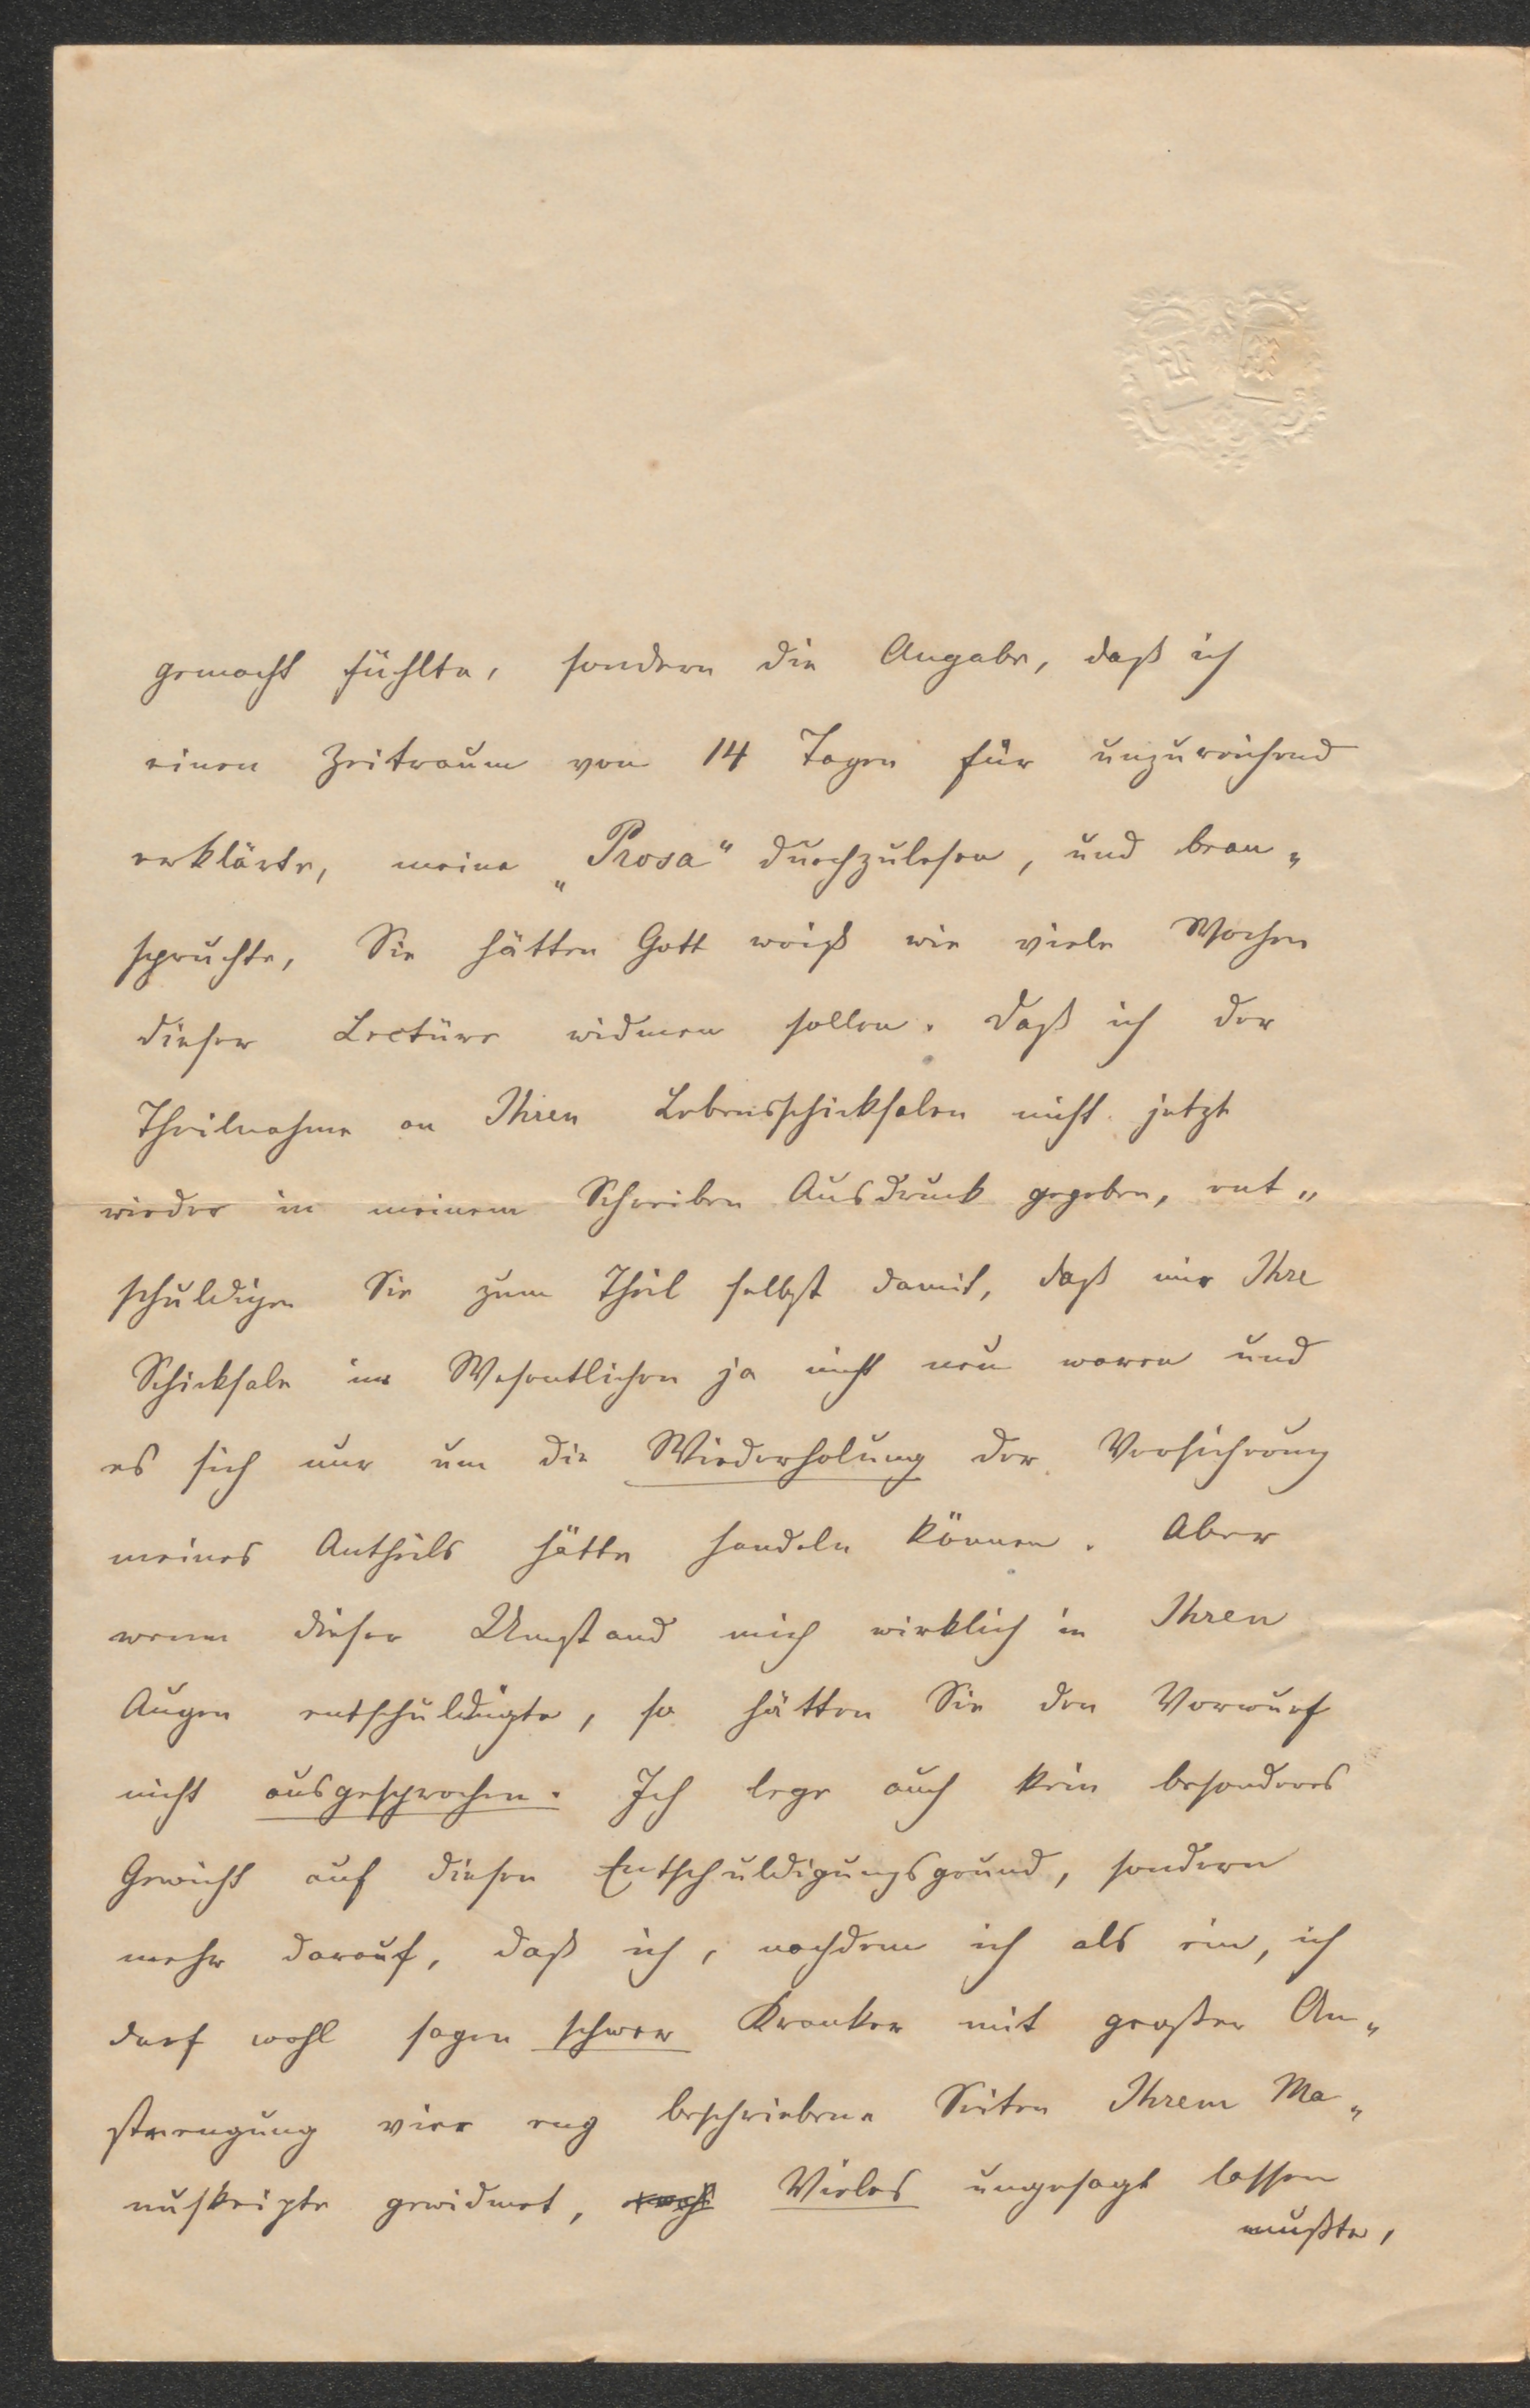 gemacht fühlte, sondern die Angabe, daß ich
einen Zeitraum von 14 Tagen für unzureichend
erklärte, meine „Prosa“ durchzulesen, und bean„
spruchte, Sie hätten Gott weiß wie viele Wochen
dieser Lectüre widmen sollen. Daß ich der
Theilnahme an Ihren Lebensschicksalen nicht jetzt
wieder in meinem Schreiben Ausdruck gegeben, ent„
schuldigen Sie zum Theil selbst damit, daß mir Ihre
Schicksale im Wesentlichen ja nicht neu waren und
es sich nur um die Wiederholung der Versicherung
meines Antheils hätte handeln können. Aber
wenn dieser Umstand mich wirklich in Ihren
Augen entschuldigte, so hätten Sie den Vorwurf
nicht ausgesprochen. Ich lege auch kein besonderes
Gewicht auf diesen Entschuldigungsgrund, sondern
mehr darauf, daß ich, nachdem ich als ein, ich
darf wohl sagen schwer Kranker mit großer An„
strengung vier eng beschriebene Seiten Ihrem Ma„
nuskripte gewidmet, Vieles ungesagt lassen
mußte,